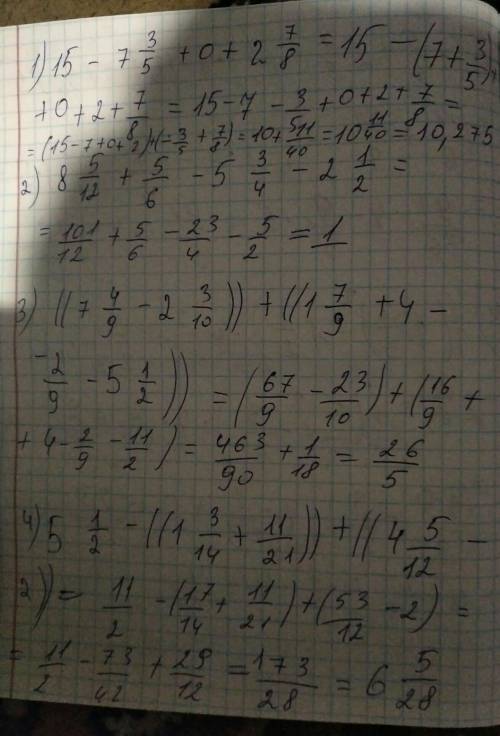 1) 15 - 7 3/5 + 0 + 2 7/8 = 15 - (7 + 3/5) +
+ 0 + 2 + 7/8 = 15 - 7 - 3/5 + 0 + 2 + 7/8 =
= (15 - 7 + 0 + 2) + (- 3/5 + 7/8) = 10 + 11/40 = 10 11/40 = 10,275
2) 8 5/12 + 5/6 - 5 3/4 - 2 1/2 =
= 101/12 + 5/6 - 23/4 - 5/2 = 1
3) ((7 4/9 - 2 3/10)) + ((1 7/9 + 4 -
- 2/9 - 5 1/2)) = (67/9 - 23/10) + (16/9 +
+ 4 - 2/9 - 11/2) = 463/90 + 1/18 = 26/5
4) 5 1/2 - ((1 3/14 + 11/21)) + ((4 5/12 -
2)) = 11/2 - (17/14 + 11/21) + (53/12 - 2) =
= 11/2 - 73/42 + 29/12 = 173/28 = 6 5/28